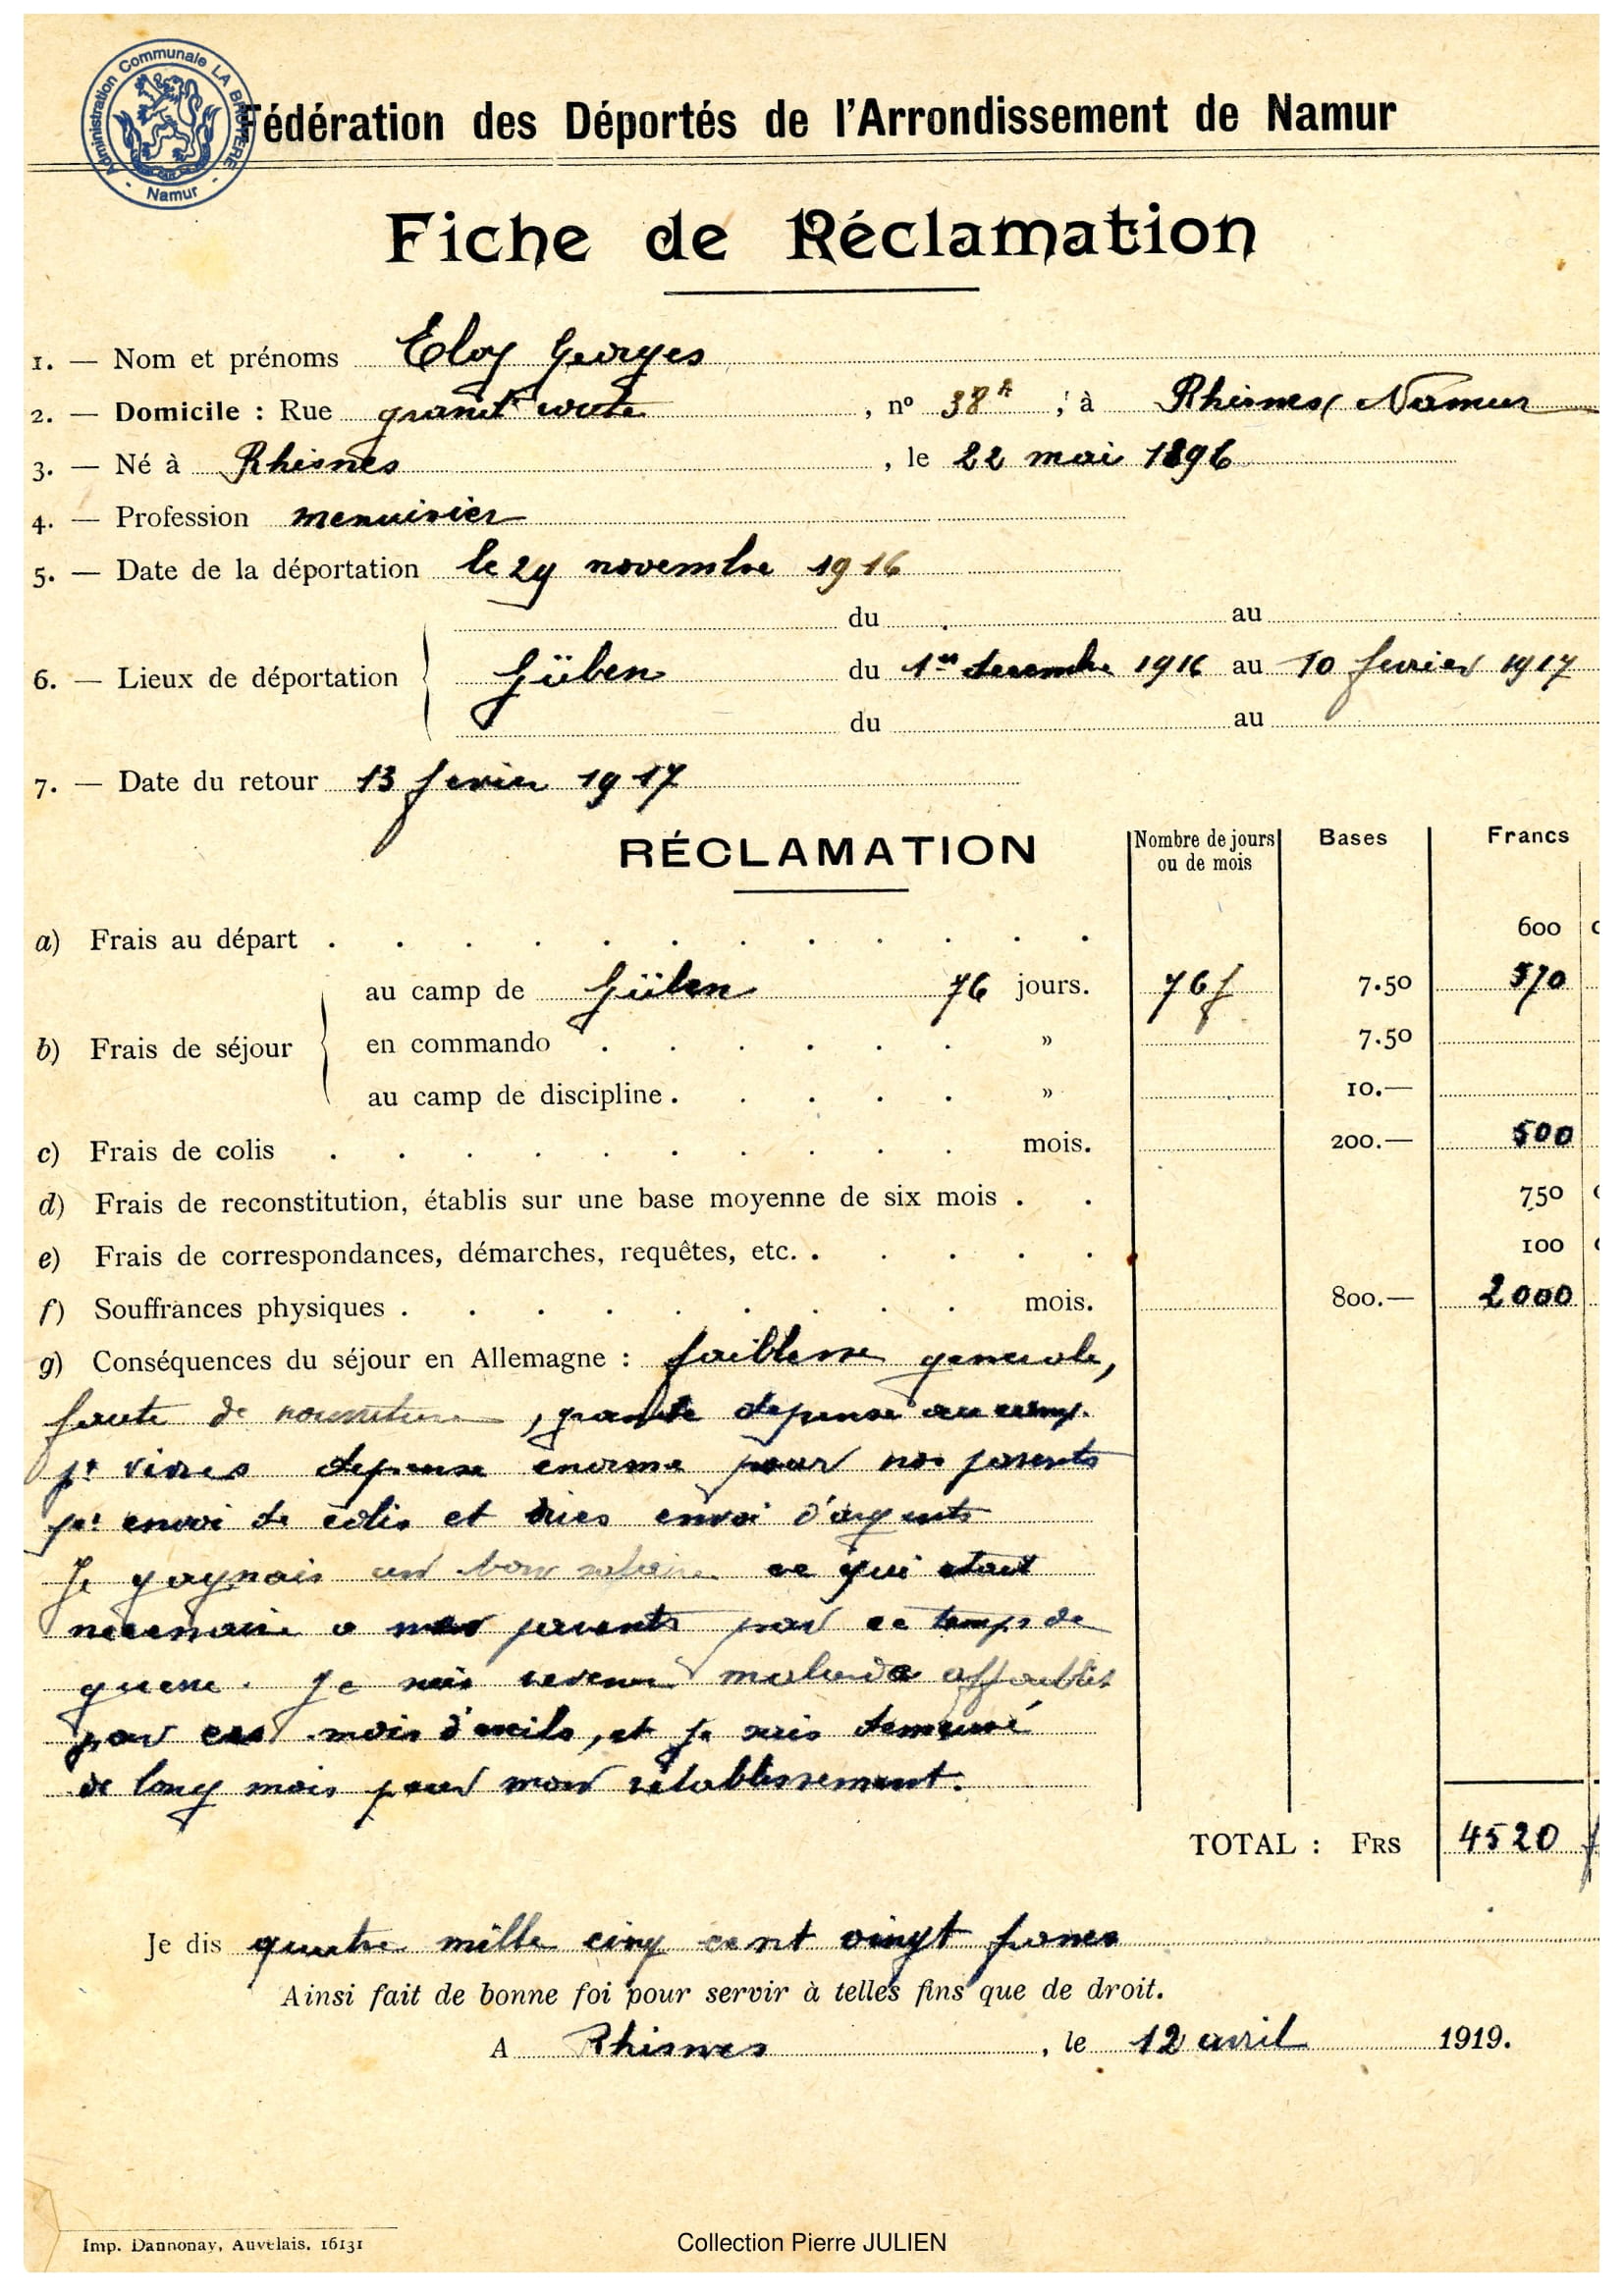 Administration Communale LA BRUYERE
- Namur -
Fédération des Déportés de l'Arrondissement de Namur
Fiche de Réclamation
1. — Nom et prénoms Eloy Georges
2. — Domicile : Rue grand route, n° 38A, à Rhisnes, Namur
3. — Né à Rhisnes, le 22 mai 1896
4. — Profession menuisier
5. — Date de la déportation le 29 novembre 1916
du au
6. — Lieux de déportation Güben du 1er decembre 1916 au 10 fevrier 1917
du au
7. — Date du retour 13 fevrier 1917
RÉCLAMATION Nombre de jours ou de mois Bases Francs
a) Frais au départ 600
au camp de Güben 76 jours. 76 f 7.50 570
b) Frais de séjour en commando » 7.50
au camp de discipline » 10.—
c) Frais de colis mois. 200.— 500
d) Frais de reconstitution, établis sur une base moyenne de six mois 750
e) Frais de correspondances, démarches, requêtes, etc. 100
f) Souffrances physiques mois. 800.— 2000
g) Conséquences du séjour en Allemagne : faiblesse generale,
faute de nourriture, grande depense au camp.
pr vivres depense enorme pour nos parents
pr envoi de colis et envoi d'argents
Je gagnais un bon salaire ce qui etait
necessaire a mes parents par ce temps de
guerre. Je suis revenu malade affaiblit
par ces mois d'exils, et je suis demeuré
de long mois pour mon rétablissement.
TOTAL : FRS 4520 f
Je dis quatre mille cinq cent vingt francs
Ainsi fait de bonne foi pour servir à telles fins que de droit.
A Rhisnes, le 12 avril 1919.
Imp. Dannonay, Auvelais. 16131
Collection Pierre JULIEN